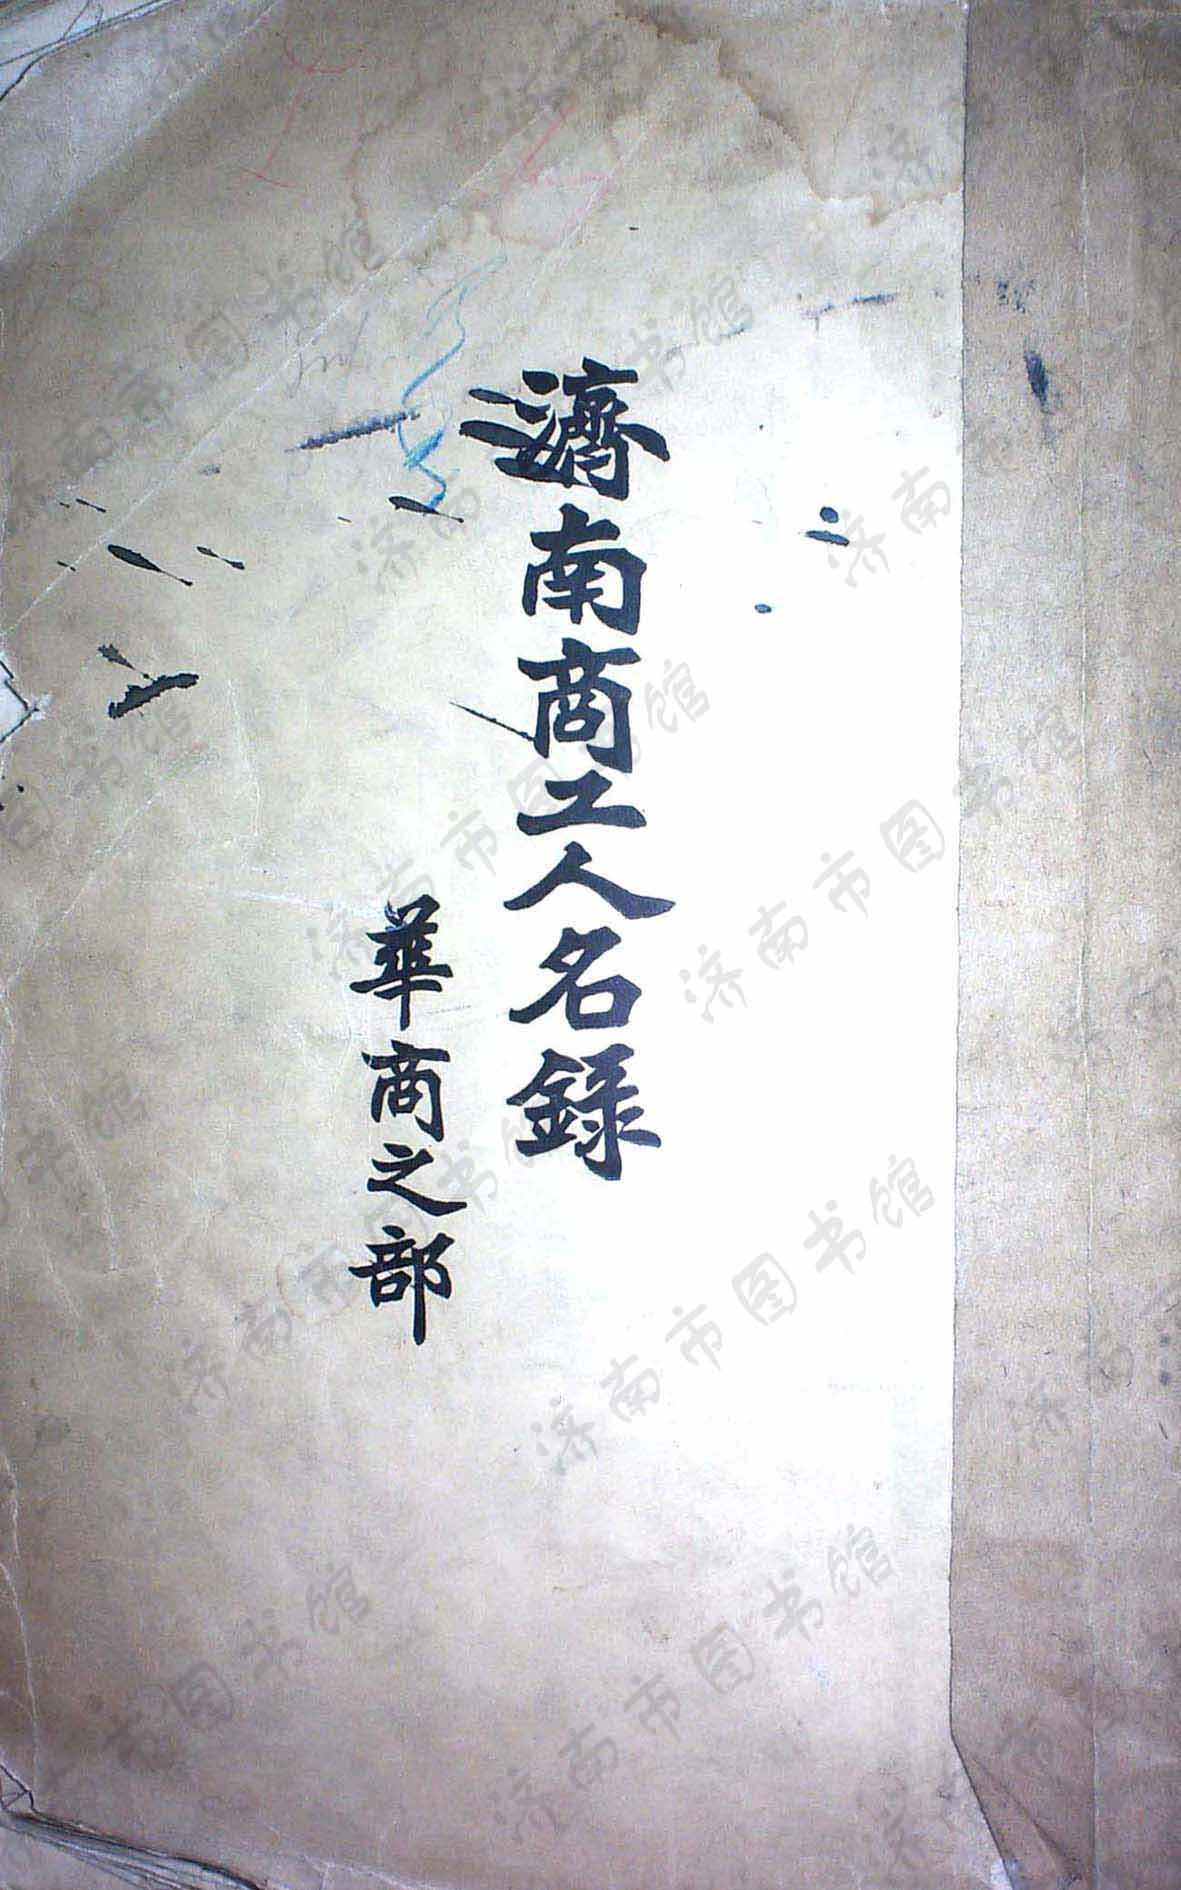 濟南商工人名錄
華商之部
济南市图书馆